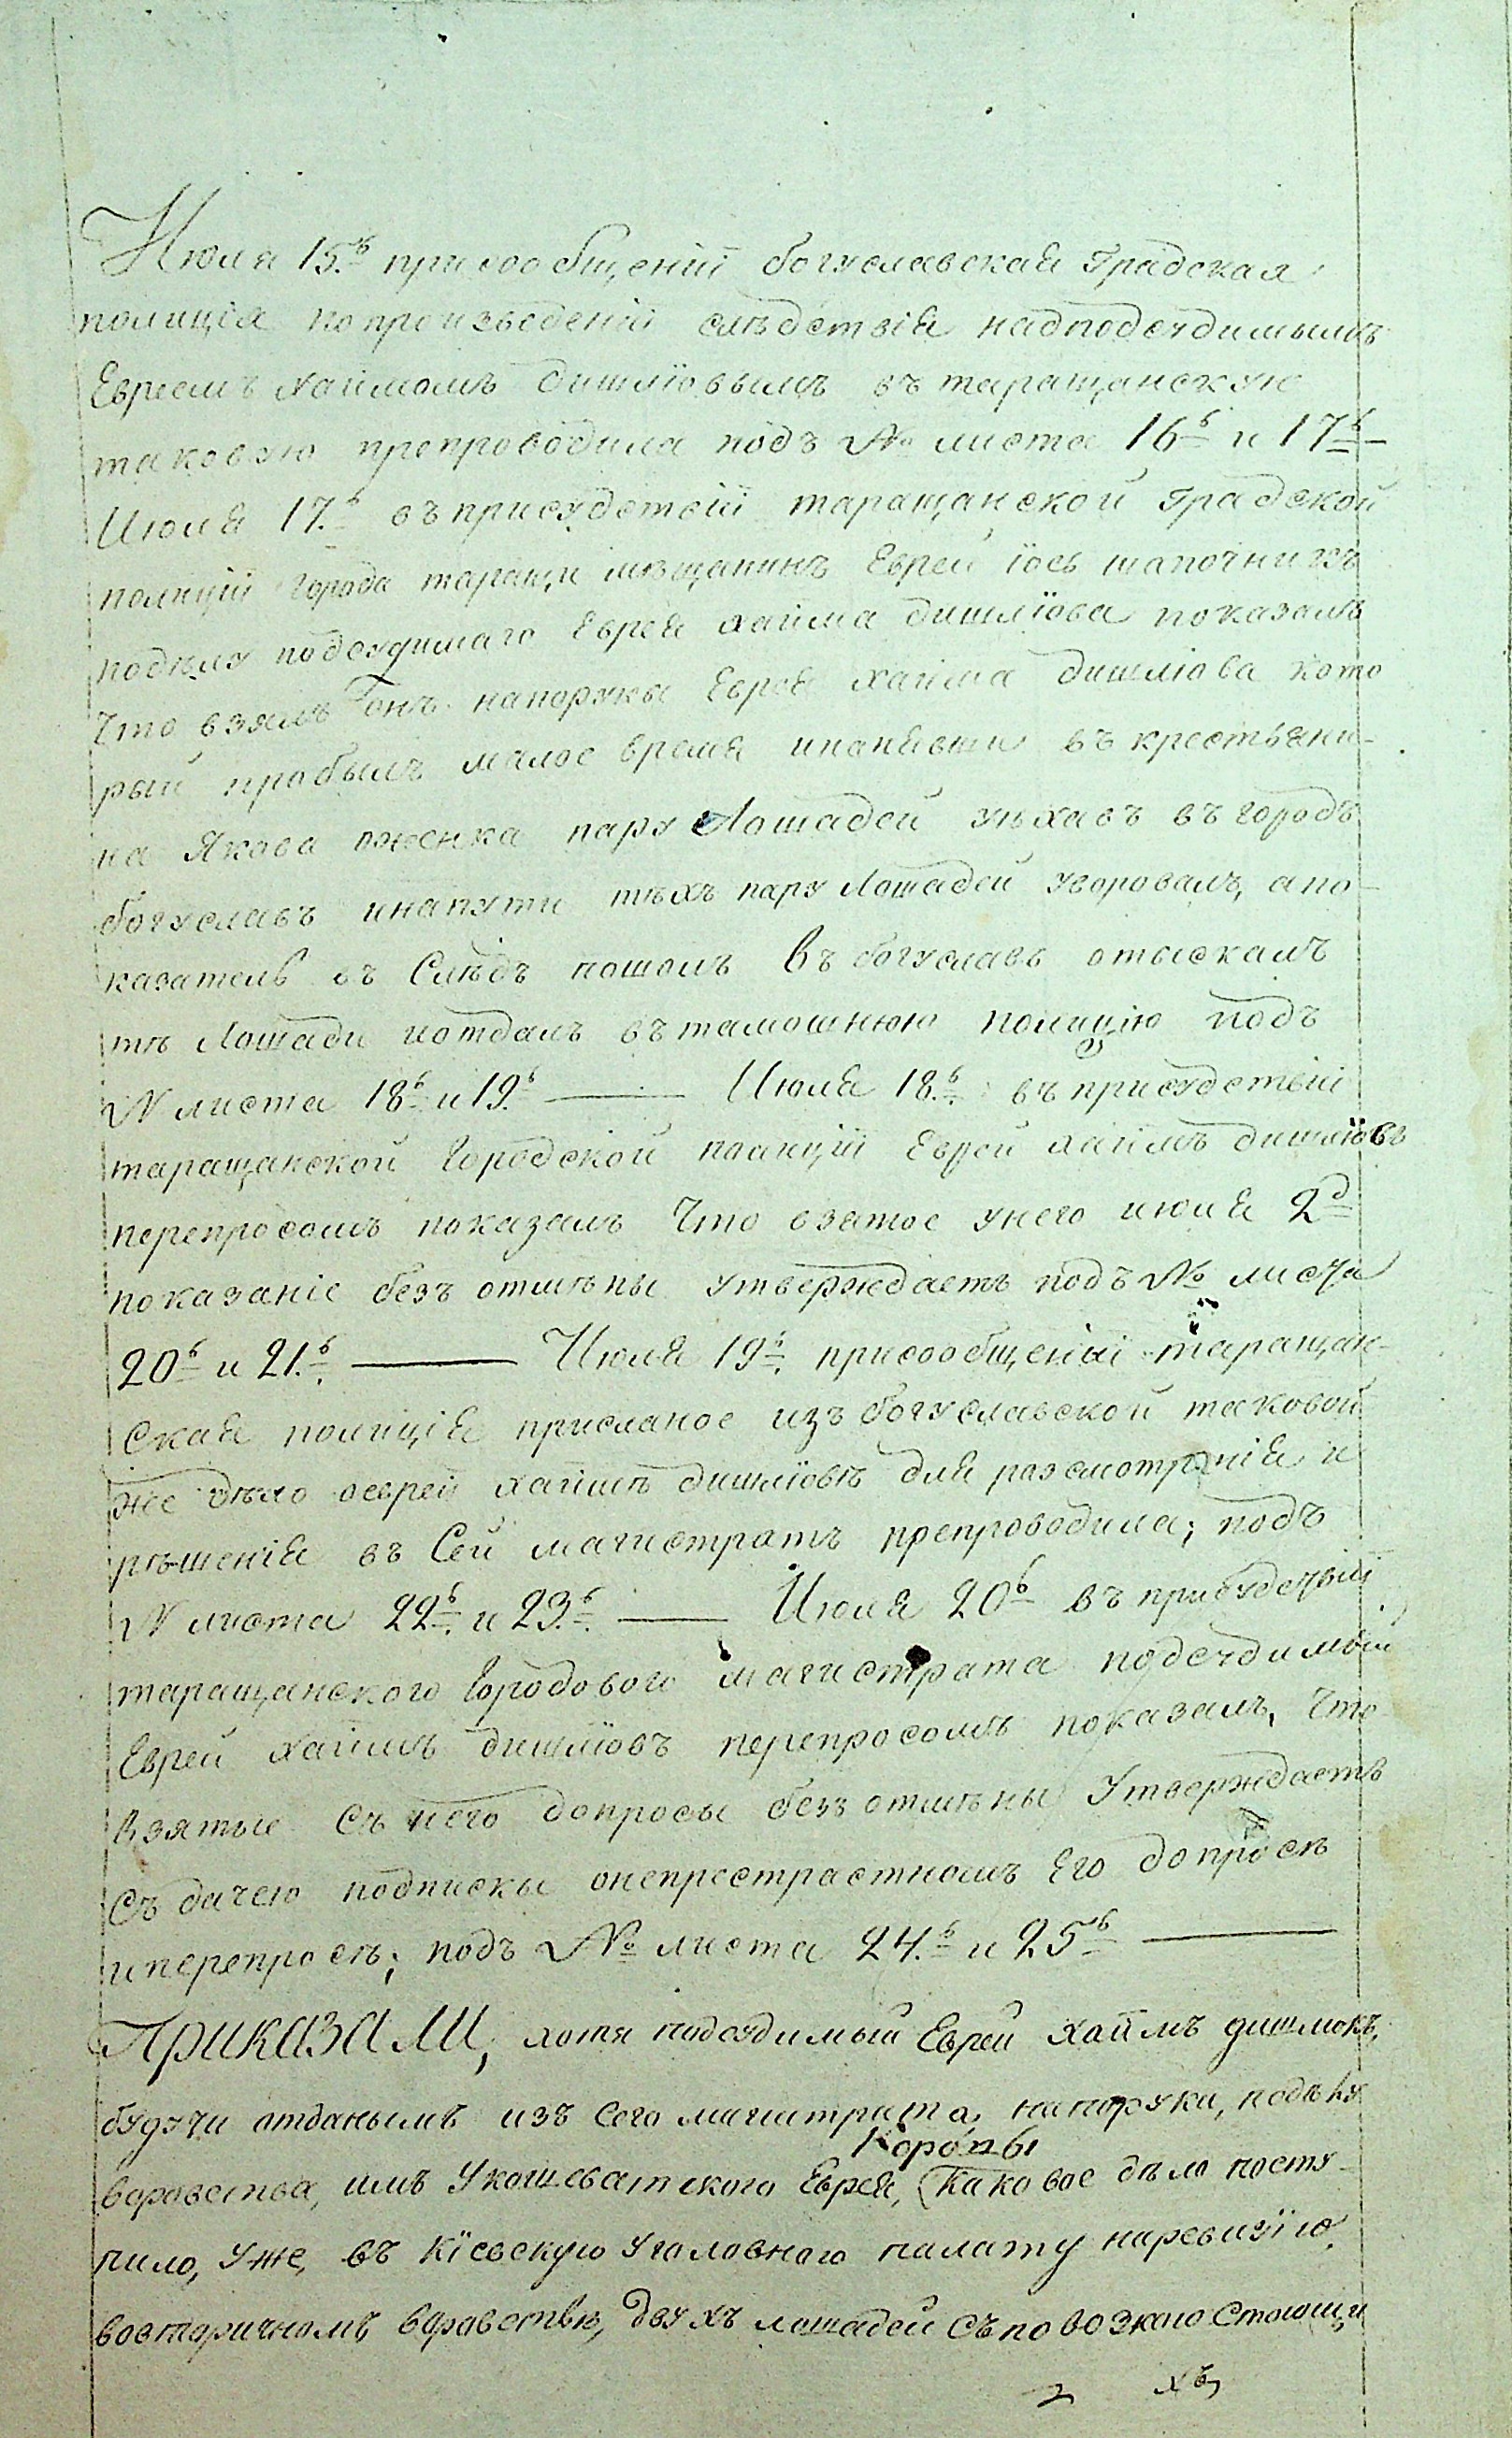 Июля 15.ъ при сообщенїй богуславская Градская
полицїя по произведенїй слѣдствїя надподсудимымъ
Евреемъ хаймомъ дишлїовымъ въ таращанскую
таковую препроводила подъ № листа 16ъ и 17ъ —
Июля 17.ъ въ присудствїй таращанской градской
полицїй города таращи мѣщанинъ Еврей їось шапочникъ
подсудимаго Еврея хайма дишлїова показалъ
Что взялъ онъ напоруки Еврея хайма дишлїова кото
рый пробылъ малое время инанявши въ крестьяни-
на Якова пару Лошадей уѣхавъ въ городъ
богуславъ инапути тѣхъ пару Лошадей уворовалъ, апо-
казатель въ Слѣдъ пошолъ въ богуславъ отыскалъ
тѣ Лошади иотдалъ вътамошнюю полицїю подъ
№ листа 18ъ и 19.ъ — Июля 18.ъ въ присудствїй
таращанской Городской полицїй Еврей хаимъ дишлїовъ
перепросомъ показалъ Что взятое унего июля 2д
показанїе безъ отмѣны утверждаетъ подъ № листа
20ъ и 21.ъ — Июля 19ъ присообщенїй таращан-
ская полицїя присланое изъ богуславской таковой
же дѣло оеврей хаймѣ дишлїовѣ для разсмотрѣнїя и
рѣшенїя въ Сей магистратъ препроводила; подъ
№ листа 22ъ. и 23.ъ — Июля 20ъ въ присудствїй
таращанского Городового магистрата подсудимый
Еврей хаимъ дишлїовъ перепросомъ показалъ, Что
взятые Съ него допросы безъ отмѣны Утверждаетъ
Съ дачею подписки онепрестрастномъ Его допросѣ
иперепросѣ; подъ № листа 24.ъ и 25ъ —
Приказали, хотя подсудимый Еврей хаймъ дишлїовъ,
будучи отданымъ изъ сего магистрата, на поруки, подѣлу
Коропы
воровства, имъ Укошеватского Еврея, Каковое дѣло посту-
пило, уже, въ кїевскую уголовного палату наревизїю,
вовторичномъ воровствѣ, двухъ лошадей съповозкою стоющи
хъ,